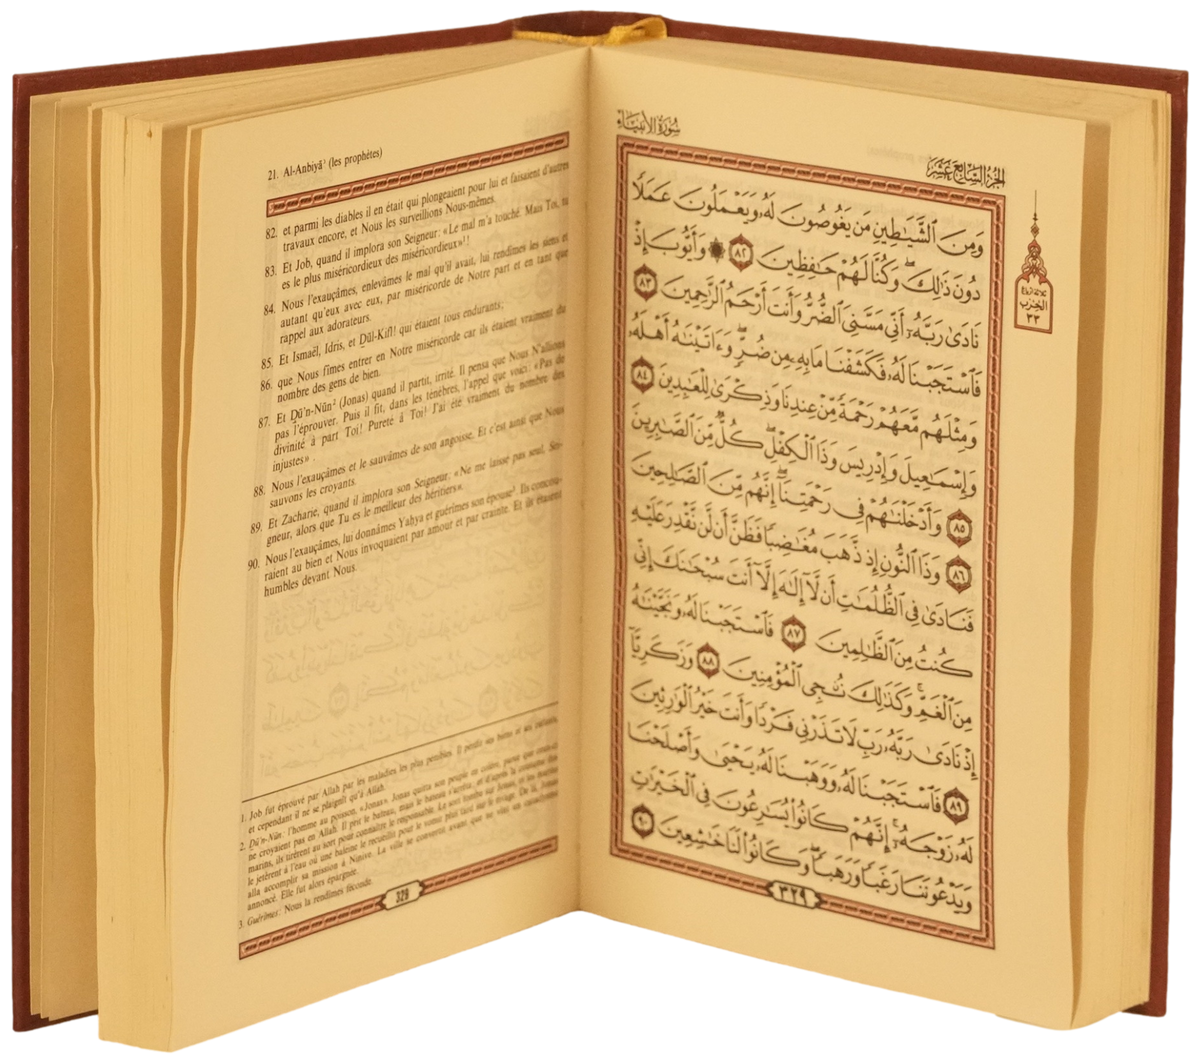 21. Al-Anbiyā' (les prophètes)
82. et parmi les diables il en était qui plongeaient pour lui et faisaient d'autres
travaux encore, et Nous les surveillions Nous-mêmes.
83. Et Job, quand il implora son Seigneur: «Le mal m'a touché. Mais Toi, tu
es le plus miséricordieux des miséricordieux»¹!
84. Nous l'exauçâmes, enlevâmes le mal qu'il avait, lui rendîmes les siens et
autant qu'eux avec eux, par miséricorde de Notre part et en tant que
rappel aux adorateurs.
85. Et Ismaël, Idris, et Ḏūl-Kifl! qui étaient tous endurants;
86. que Nous fîmes entrer en Notre miséricorde car ils étaient vraiment du
nombre des gens de bien.
87. Et Ḏū'n-Nūn² (Jonas) quand il partit, irrité. Il pensa que Nous N'allions
pas l'éprouver. Puis il fit, dans les ténèbres, l'appel que voici: «Pas de
divinité à part Toi! Pureté à Toi! J'ai été vraiment du nombre des
injustes».
88. Nous l'exauçâmes et le sauvâmes de son angoisse. Et c'est ainsi que Nous
sauvons les croyants.
89. Et Zacharie, quand il implora son Seigneur: «Ne me laisse pas seul, Sei-
gneur, alors que Tu es le meilleur des héritiers».
90. Nous l'exauçâmes, lui donnâmes Yaḥya et guérîmes son épouse³. Ils concou-
raient au bien et Nous invoquaient par amour et par crainte. Et ils étaient
humbles devant Nous.
1. Job fut éprouvé par Allah par les maladies les plus pénibles. Il perdit ses biens et ses enfants,
et cependant il ne se plaignît qu'à Allah.
2. Ḏū'n-Nūn: l'homme au poisson, «Jonas». Jonas quitta son peuple en colère, parce que ceux-ci
ne croyaient pas en Allah. Il prit le bateau, mais le bateau s'arrêta; et d'après la coutume des
marins, ils tirèrent au sort pour connaître le responsable. Le sort tomba sur Jonas, et les marins
le jetèrent à l'eau où une baleine le recueillit pour le vomir plus tard sur le rivage. De là, Jonas
alla accomplir sa mission à Ninive. La ville se convertit avant que ne vînt un cataclysme
annoncé. Elle fut alors épargnée.
3. Guérîmes: Nous la rendîmes féconde.
329
سُورَةُ الأَنبِيَاءِ
الجُزْءُ السَّابِعَ عَشَرَ
وَمِنَ ٱلشَّيَٰطِينِ مَن يَغُوصُونَ لَهُۥ وَيَعْمَلُونَ عَمَلًا
دُونَ ذَٰلِكَ ۖ وَكُنَّا لَهُمْ حَٰفِظِينَ ٨٢ ۞ وَأَيُّوبَ إِذْ
نَادَىٰ رَبَّهُۥٓ أَنِّى مَسَّنِىَ ٱلضُّرُّ وَأَنتَ أَرْحَمُ ٱلرَّٰحِمِينَ ٨٣
فَٱسْتَجَبْنَا لَهُۥ فَكَشَفْنَا مَا بِهِۦ مِن ضُرٍّ ۖ وَءَاتَيْنَٰهُ أَهْلَهُۥ
وَمِثْلَهُم مَّعَهُمْ رَحْمَةً مِّنْ عِندِنَا وَذِكْرَىٰ لِلْعَٰبِدِينَ ٨٤
وَإِسْمَٰعِيلَ وَإِدْرِيسَ وَذَا ٱلْكِفْلِ ۖ كُلٌّ مِّنَ ٱلصَّٰبِرِينَ
٨٥ وَأَدْخَلْنَٰهُمْ فِى رَحْمَتِنَآ ۖ إِنَّهُم مِّنَ ٱلصَّٰلِحِينَ
٨٦ وَذَا ٱلنُّونِ إِذ ذَّهَبَ مُغَٰضِبًا فَظَنَّ أَن لَّن نَّقْدِرَ عَلَيْهِ
فَنَادَىٰ فِى ٱلظُّلُمَٰتِ أَن لَّآ إِلَٰهَ إِلَّآ أَنتَ سُبْحَٰنَكَ إِنِّى
كُنتُ مِنَ ٱلظَّٰلِمِينَ ٨٧ فَٱسْتَجَبْنَا لَهُۥ وَنَجَّيْنَٰهُ
مِنَ ٱلْغَمِّ ۚ وَكَذَٰلِكَ نُۨجِى ٱلْمُؤْمِنِينَ ٨٨ وَزَكَرِيَّآ
إِذْ نَادَىٰ رَبَّهُۥ رَبِّ لَا تَذَرْنِى فَرْدًا وَأَنتَ خَيْرُ ٱلْوَٰرِثِينَ
٨٩ فَٱسْتَجَبْنَا لَهُۥ وَوَهَبْنَا لَهُۥ يَحْيَىٰ وَأَصْلَحْنَا
لَهُۥ زَوْجَهُۥٓ ۚ إِنَّهُمْ كَانُوا۟ يُسَٰرِعُونَ فِى ٱلْخَيْرَٰتِ
وَيَدْعُونَنَا رَغَبًا وَرَهَبًا ۖ وَكَانُوا۟ لَنَا خَٰشِعِينَ ٩٠
ثلاثة أرباع
الحزب
٣٣
٣٢٩